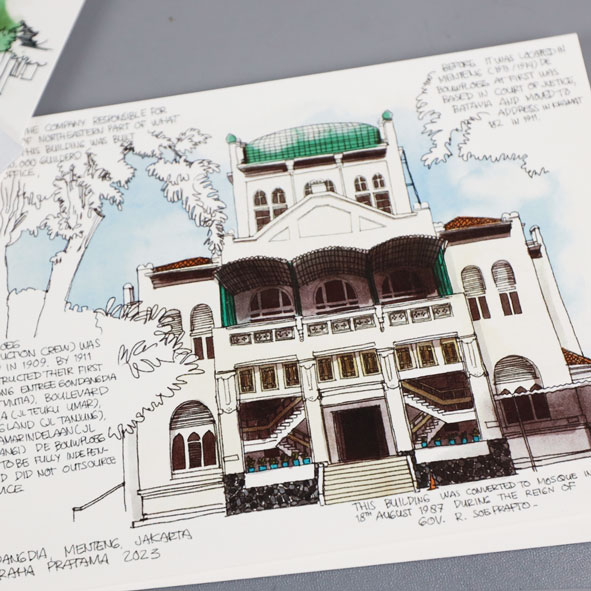 THE COMPANY RESPONSIBLE FOR
NORTHEASTERN PART OF WHAT
THIS BUILDING WAS BUILT
,000 GUILDERS
OFFICE,
BEFORE IT WAS LOCATED IN
MENTENG DE
BOUWPLOEG AT FIRST WAS
BASED IN COURT OF JUSTICE,
BATAVIA AND MOVED TO
ADDRESS IN KRAMAT
IN 1911.
UCTION CREW) WAS
IN 1909. BY 1911
TRUCTED THEIR FIRST
ENTREE GONDANGDIA
BOULEVARD
(JL TEUKU UMAR),
GLAND (JL TANJUNG),
TAMARINDELAAN (JL
DE BOUWPLOEG
TO BE FULLY INDEPEN-
D DID NOT OUTSOURCE
THIS BUILDING WAS CONVERTED TO MOSQUE IN
18TH AUGUST 1987 DURING THE REIGN OF
GOV. R. SOEPRAPTO -
DANGDIA, MENTENG, JAKARTA
RAHA PRATAMA 2023